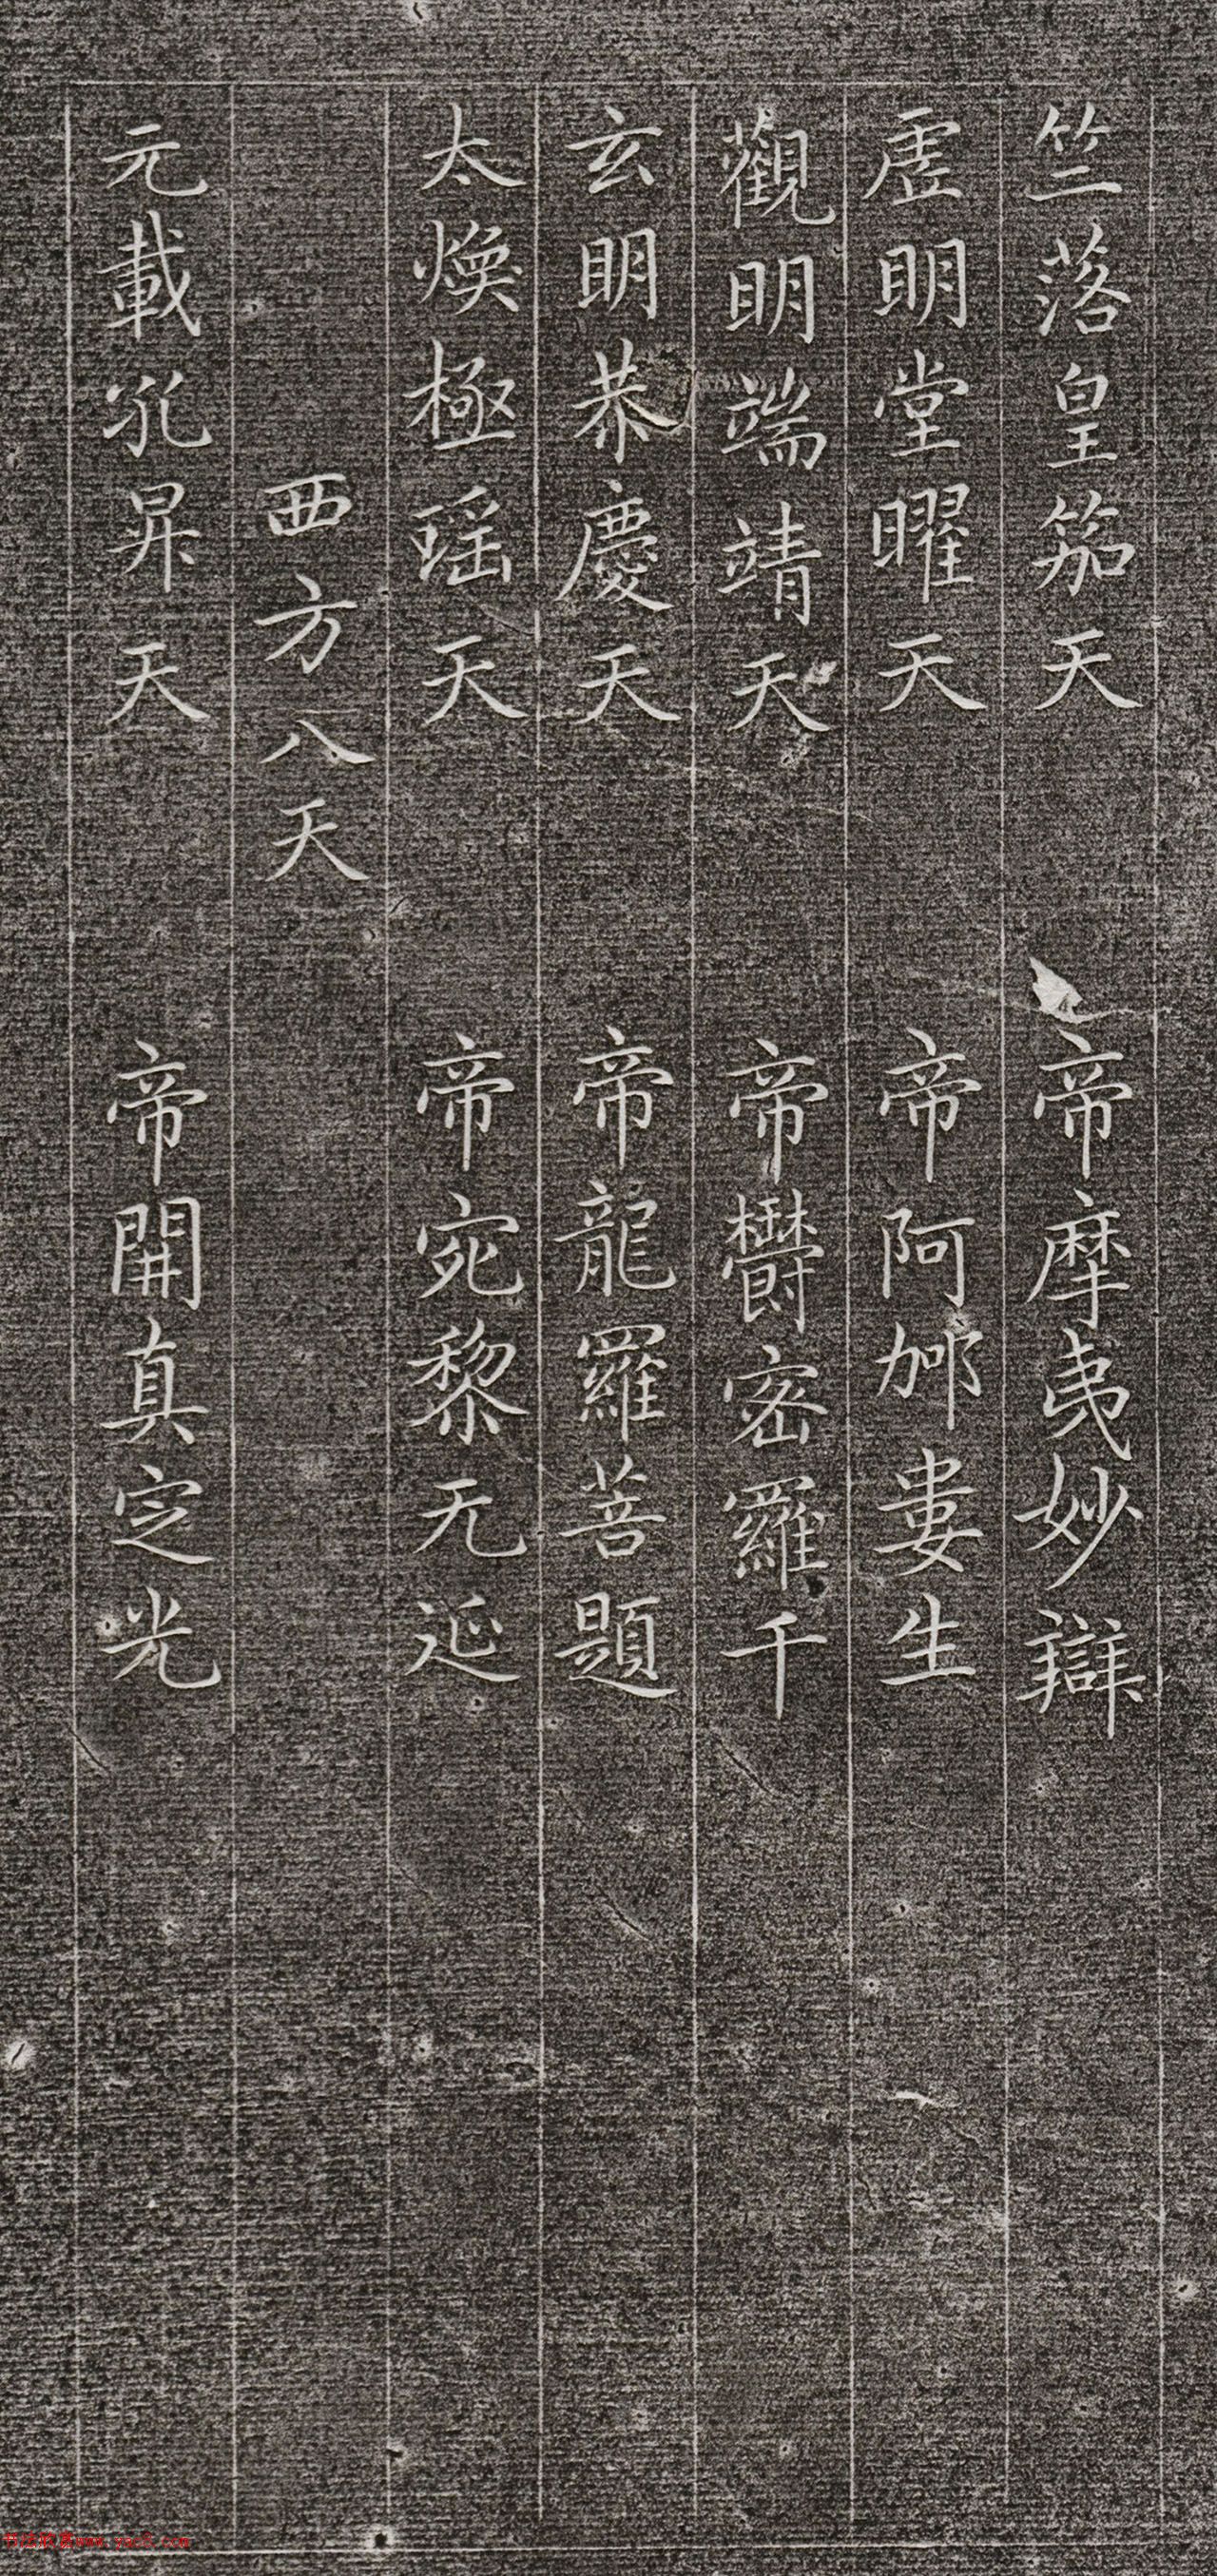 竺落皇笳天 帝摩夷妙辯
虛明堂曜天 帝阿䢈婁生
觀明端靖天 帝欝密羅千
玄明恭慶天 帝龍羅菩題
太煥極瑤天 帝宛黎无延
西方八天
元載孔昇天 帝開真定光